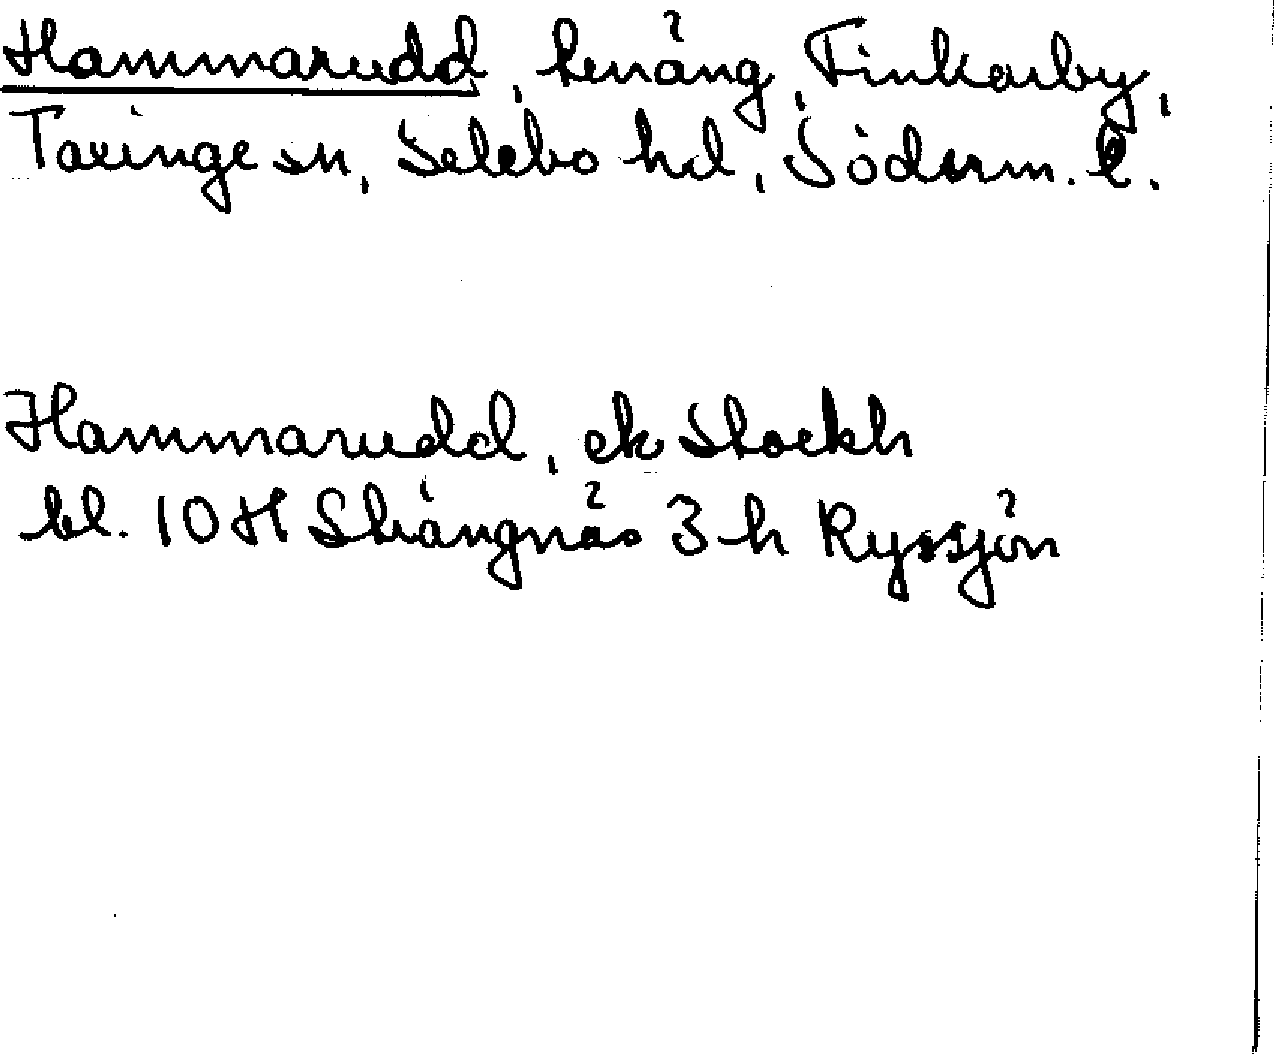 Hammarudd, lenäng, Finkarby,
Taxinge sn, Selebo hd, Söderm. l.
Hammarudd, ek Stockh
bl. 10 H Strängnäs 3 h Ryssjön